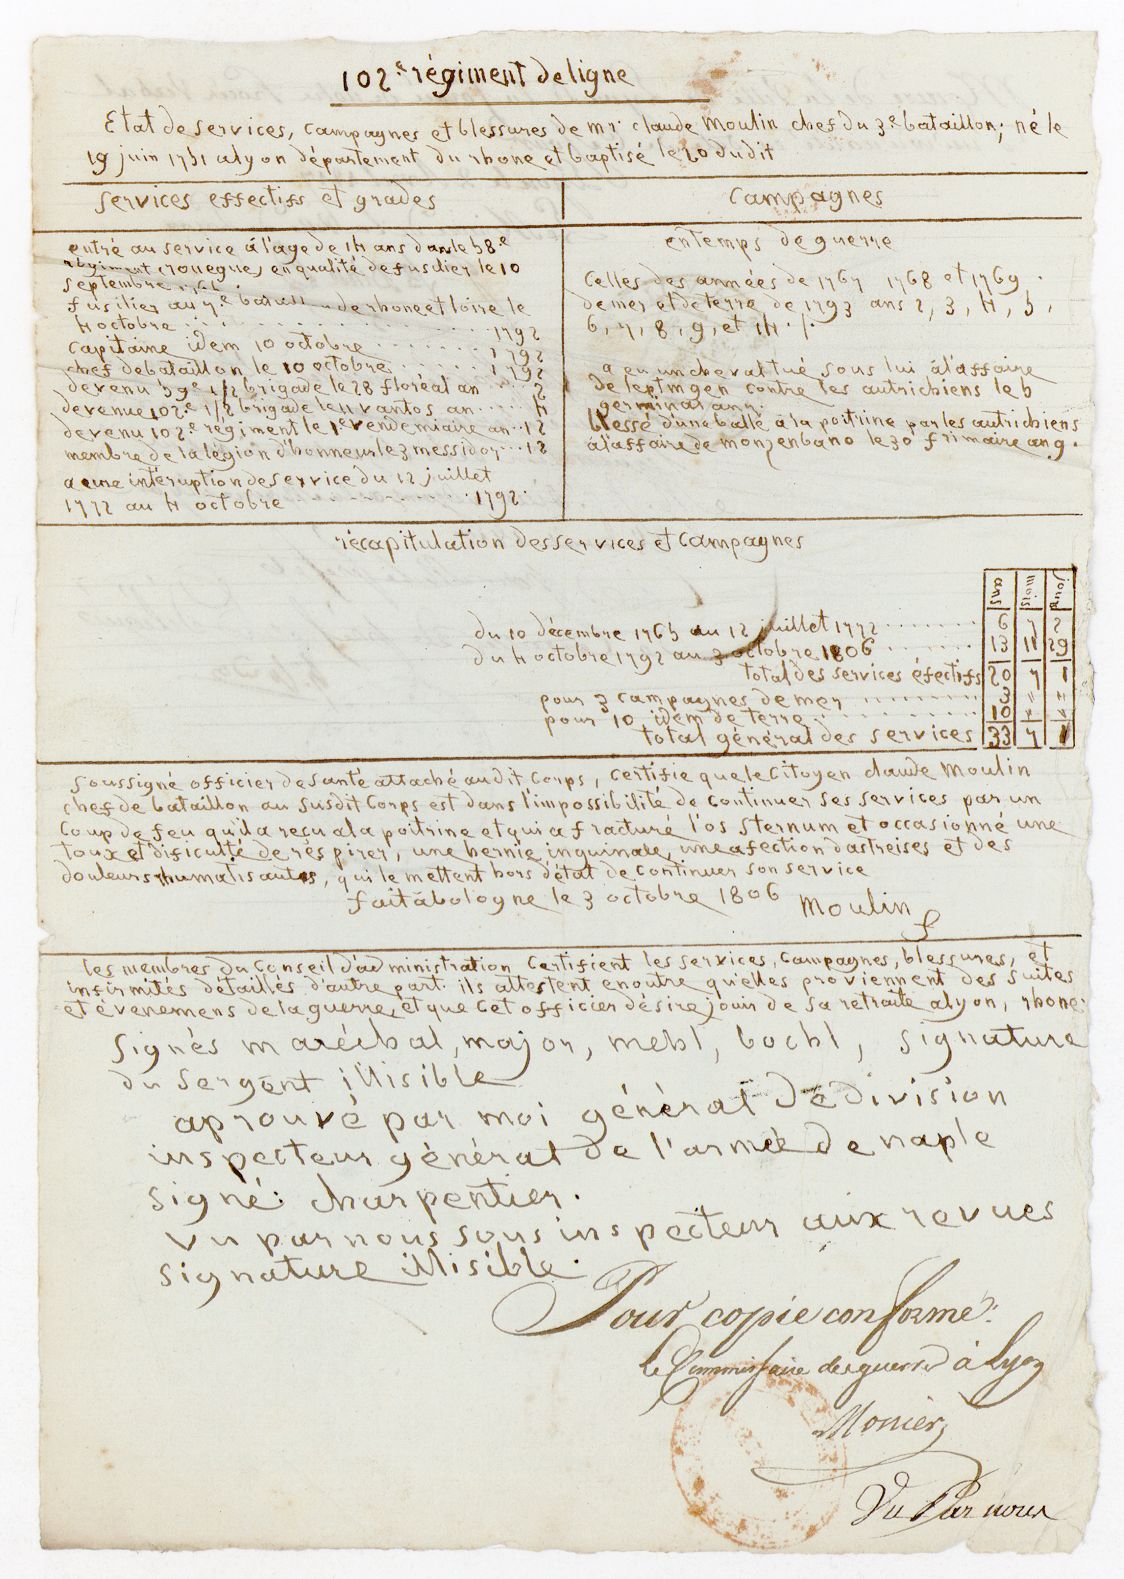 102.e régiment de ligne
Etat de services, campagnes et blessures de mr. claude Moulin chef du 3.e bataillon; né le
19 juin 1751 a lyon département du rhone et baptisé le 20 dudit
services effectifs et grades
entré au service á l'age de 14 ans dans le 58.e
régiment (rouegue) en qualité de fusilier le 10
septembre
fusilier au 7.e de rhone et loire le
4 octobre 1792
capitaine idem 10 octobre 1792
chef de bataillon le 10 octobre 1792
devenu 59.e 1/2 brigade le 28 floréal an 2
devenue 102.e 1/2 brigade le 11 vantos an 4
devenu 102.e régiment le 1.e vendemiaire an 12
membre de la légion d'honneur le 3 messidor 12
a eu une intéruption de service du 12 juillet
1772 au 4 octobre 1792.
Campagnes
en temps de guerre
Celles des années de 1767 1768 et 1769.
de mer et de terre de 1793 ans 2, 3, 4, 5,
6, 7, 8, 9, et 14.
a eu un cheval tué sous lui á l'affaire
de leptingen contre les autrichiens le 6
germinal an
blessé d'une balle á la poitrine par les autrichiens
á l'affaire de monzenbano le 30 frimaire an 9.
récapitulation des services et campagnes
ans mois jours
du 10 décembre 1765 au 12 juillet 1772 6 7 2
du 4 octobre 1792 au 3 octobre 1806 13 11 29
total des services éfectifs 20 7 1
pour 3 campagnes de mer 3 " "
pour 10 idem de terre 10 " "
total général des services 33 7 1
soussigné officier de santé attaché audit corps, certifie que le Citoyen claude Moulin
chef de bataillon au susdit Corps est dans l'impossibilité de continuer ses services par un
coup de feu qu'il a reçu a la poitrine et qui a fracturé l'os sternum et occasionné une
toux et dificulté de réspirer, une hernie inguinale, une afection dastreises et des
douleurs rhumatisantes, qui le mettent hors d'état de continuer son service
fait á bologne le 3 octobre 1806 Moulin
les membres du Conseil d'administration Certifient les services, campagnes, blessures, et
infirmités détaillés d'autre part. ils attestent en outre qu'elles proviennent des suites
et évenemens de la guerre, et que Cet officier désire jouir de sa retraite a lyon, rhone.
Signés maréchal, major, mehl, bochl, signature
du sergent illisible
aprouvé par moi général de division
inspecteur général de l'armée de naple
signé: charpentier.
vu par nous sous inspecteur aux revues
signature illisible.
Pour copie conforme:
le Commissaire des guerres à Lyon
Monier
Vu Par nous